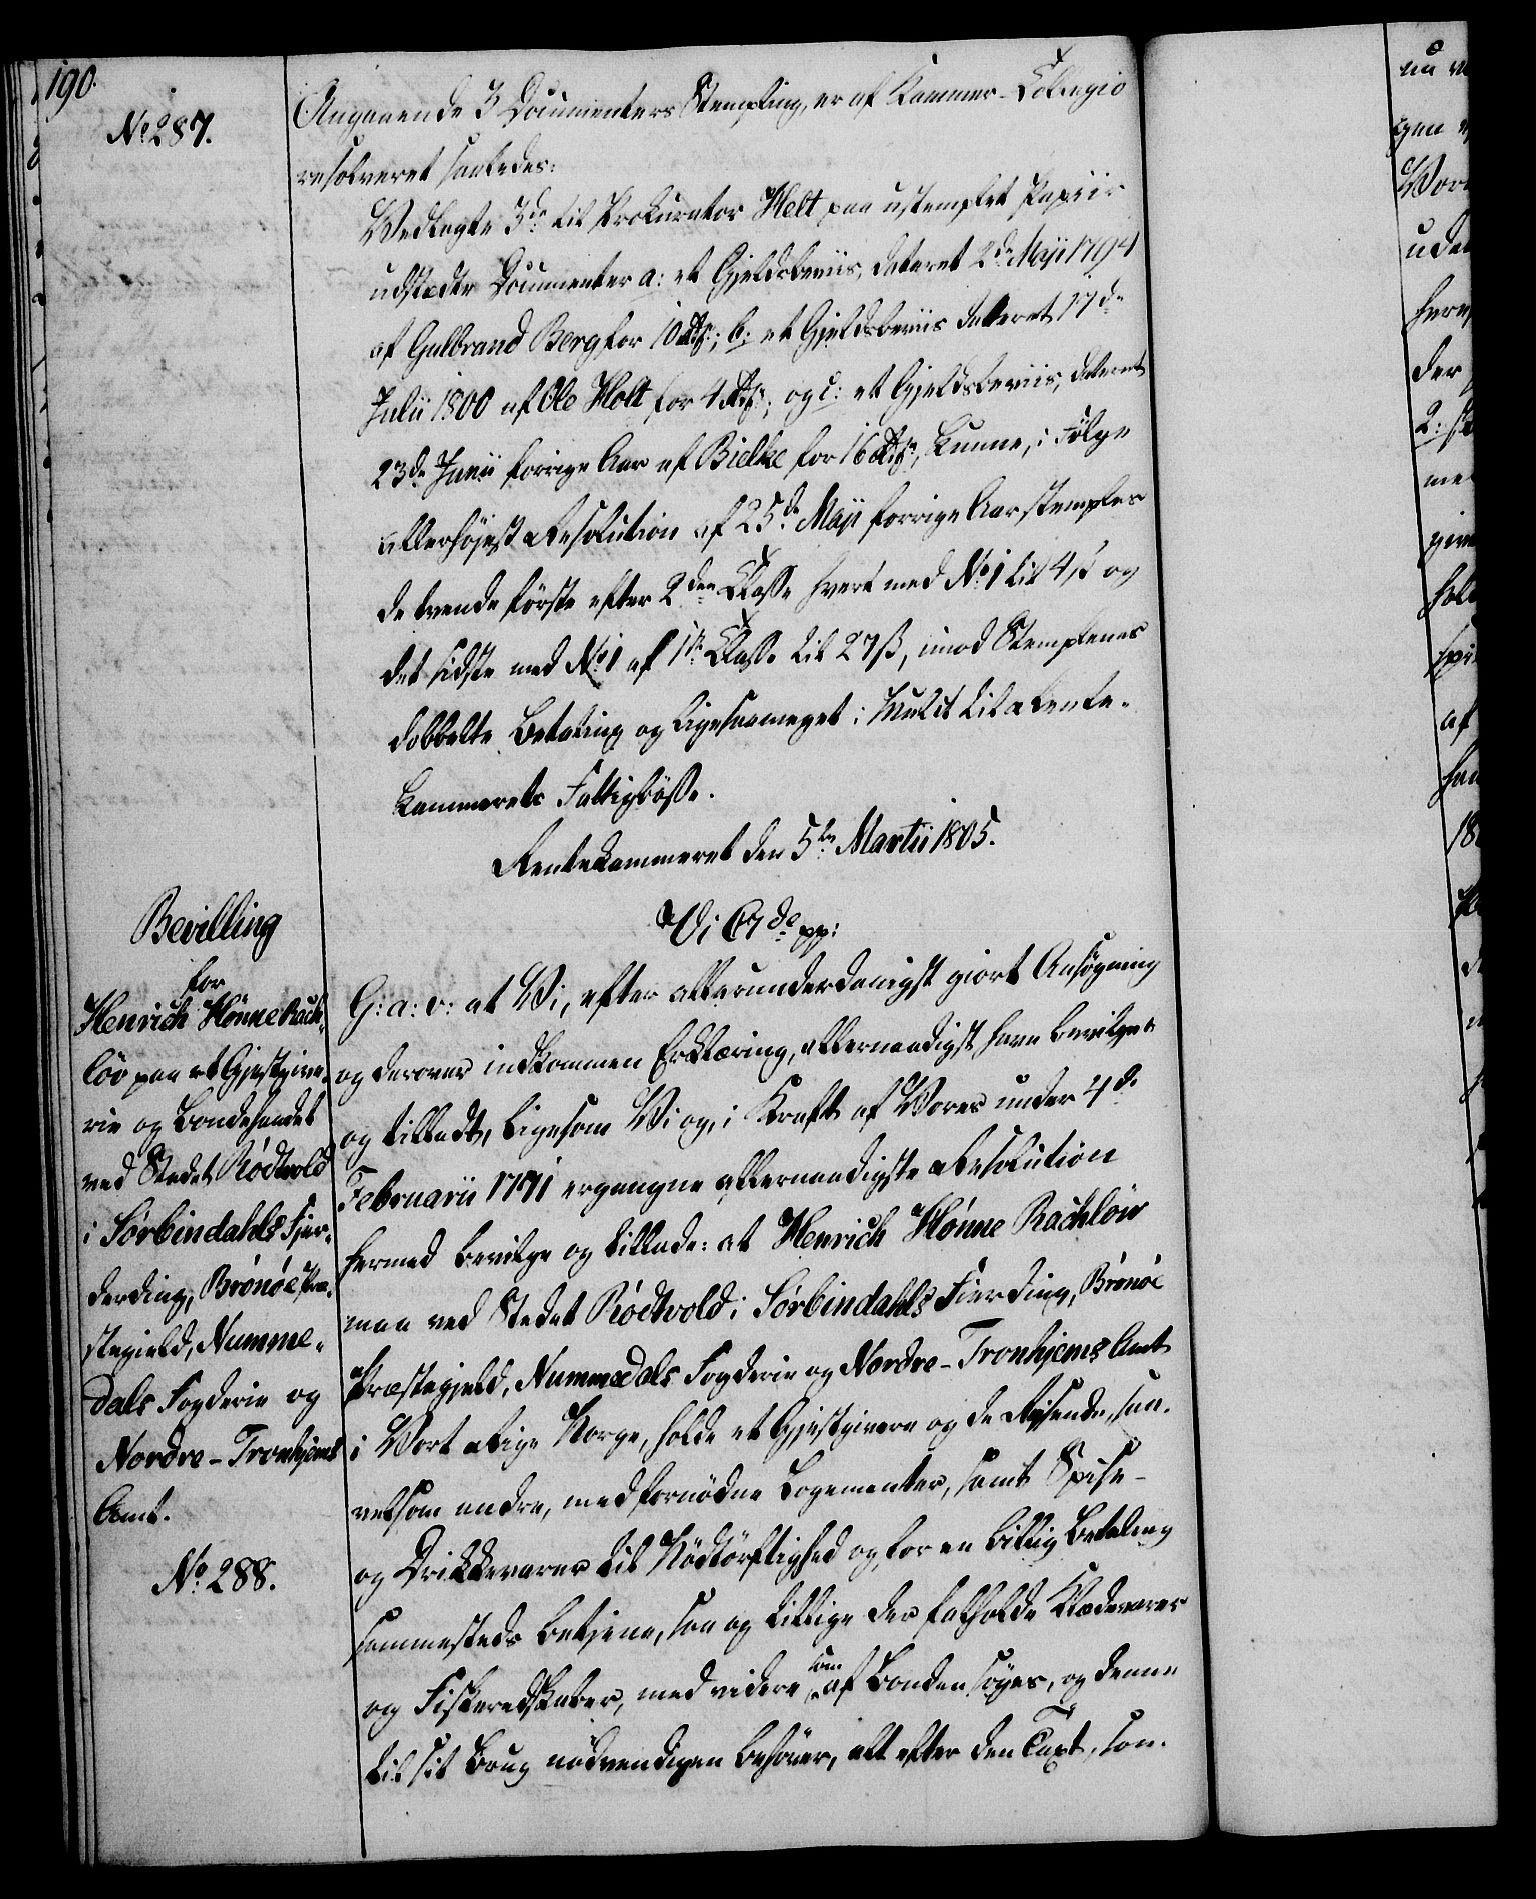 190.
No 287.
Angaaende 3 Documenters Stempling, er af Kammer-Collegio
resolveret saaledes:
Vedlagte 3de til Prokurator Helt paa ustemplet Papiir
udstædte Documenter a: et Gjeldsbeviis, dateret 2de Maji 1794
af Gulbrand Berg for 10 rdr; b: et Gjeldsbeviis dateret 17de
Julii 1800 af Ole Holt for 4 rdr; og c: et Gjeldsbeviis, dateret
23de Junii forrige Aar af Bielke for 16 rdr, kunne, i Følge
allerhöjeste Resolution af 25de Maji forrige Aar stemples
de tvende förste efter 2den Classe hvert med No 1 til 4 ß og
det sidste med No 1 af 1ste Classe til 27 ß, imod Stemplenes
dobbelte Betaling og ligesaameget i Mulct til Rente-
kammerets Fattigbösse.
Rentekammeret den 5te Martii 1805.
Bevilling
for
Henrich Hönne Rach-
löv paa et Gjestgive-
rie og Bondehandel
ved Stedet Rödtvold
i Sörbindahls Fjer-
derding, Brönöe Præ-
stegield, Numme-
dals Fogderie og
Nordre-Tronhjems
Amt.
No 288.
Vi C7de pp:
G: a: v: at Vi, efter allerunderdanigst giort Ansögning
og derover indkommen Erklæring, allernaadigst have bevilget
og tilladt, ligesom Vi og, i Kraft af Vores under 4de
Februarii 1771 ergangne allernaadigste Resolution
hermed bevilge og tillade: at Henrich Hönne Rachlöv
maa ved Stedet Rödtvold i Sörbindahls Fierding, Brönöe
Præstegjeld, Nummedals Fogderie og Nordre-Tronhjems Amt
i Vort Rige Norge, holde et Gjestgiverie og de Rejsende, saa-
velsom andre, med fornödne Logementer, samt Spise-
og Drikkevarer til Nödtörftighed og for en billig Betaling
sammesteds betjene, saa og tillige der falholde Klædevarer
og Fiskeredskaber, med videre som af Bonden söges, og denne
til sit Brug nödvendigen behöver, alt efter den Taxt, som